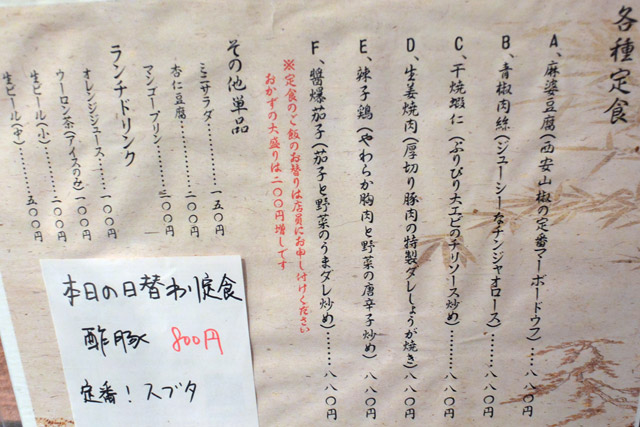 各種定食
A、麻婆豆腐(西安山椒の定番マーボードウフ)…八八〇円
B、青椒肉絲(ジューシーなチンジャオロース)………八八〇円
C、干焼蝦仁(ぷりぷり大エビのチリソース炒め)………八八〇円
D、生姜焼肉(厚切り豚肉の特製ダレしょうが焼き)八八〇円
E、辣子鶏(やわらか胸肉と野菜の唐辛子炒め)………八八〇円
F、醬爆茄子(茄子と野菜のうまダレ炒め)………八八〇円
※定食のご飯のお替りは店員にお申し付けください
おかずの大盛りは二〇〇円増しです
その他単品
ミニサラダ…………一五〇円
杏仁豆腐…………二〇〇円
マンゴープリン………三〇〇円
ランチドリンク
オレンジジュース………一〇〇円
ウーロン茶(アイスのみ)一〇〇円
生ビール(小)…………二〇〇円
生ビール(中)…………五〇〇円
本日の日替わり定食
酢豚 800円
定番!スブタ